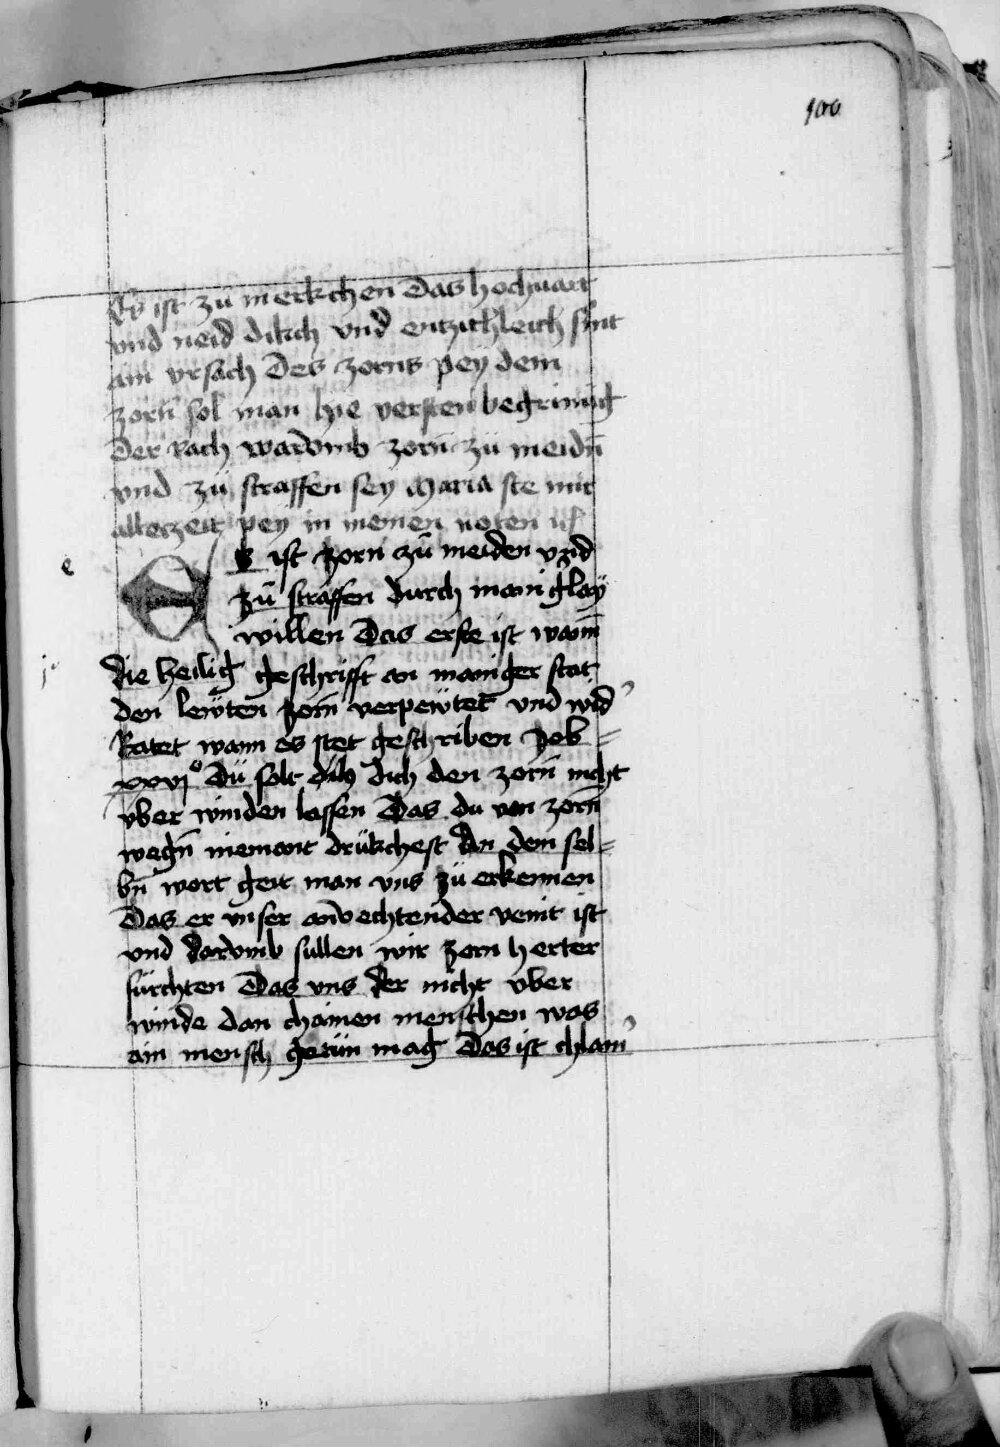 100
Es ist zü merkchen das hochuart
vnd neid dikch vnd entzichleich sint
ain vrsach des zorns pey dem
zorn sol man hie versten begrimūg
der rach warvmb zorn zü meidn̄
vnd zü straffen sey Maria ste mir
alletzeit pey in meinen noten
e
Es ist zorn zü meiden vnd
zü straffen durch manigĺay
willen Das erste ist wann̄
die heilig geschrifft an maniger stat
den lewten zorn verpewtet vnd wid
Ratet wann es stet geschriben Job =
xxvjͦ Dü solt dih dich den zorn nicht
vber winden lassen Das du von zorn
wegn̄ niemant drükchest An dem sel =
bn̄ wort geit man vns zü erkennen
Das er vnser anvechtender veint ist
vnd darvmb sullen wir zorn herter
fürchten Das vns der nicht vber
winde dan chainen menschen was
ain mensch getün mag Das ist chlain